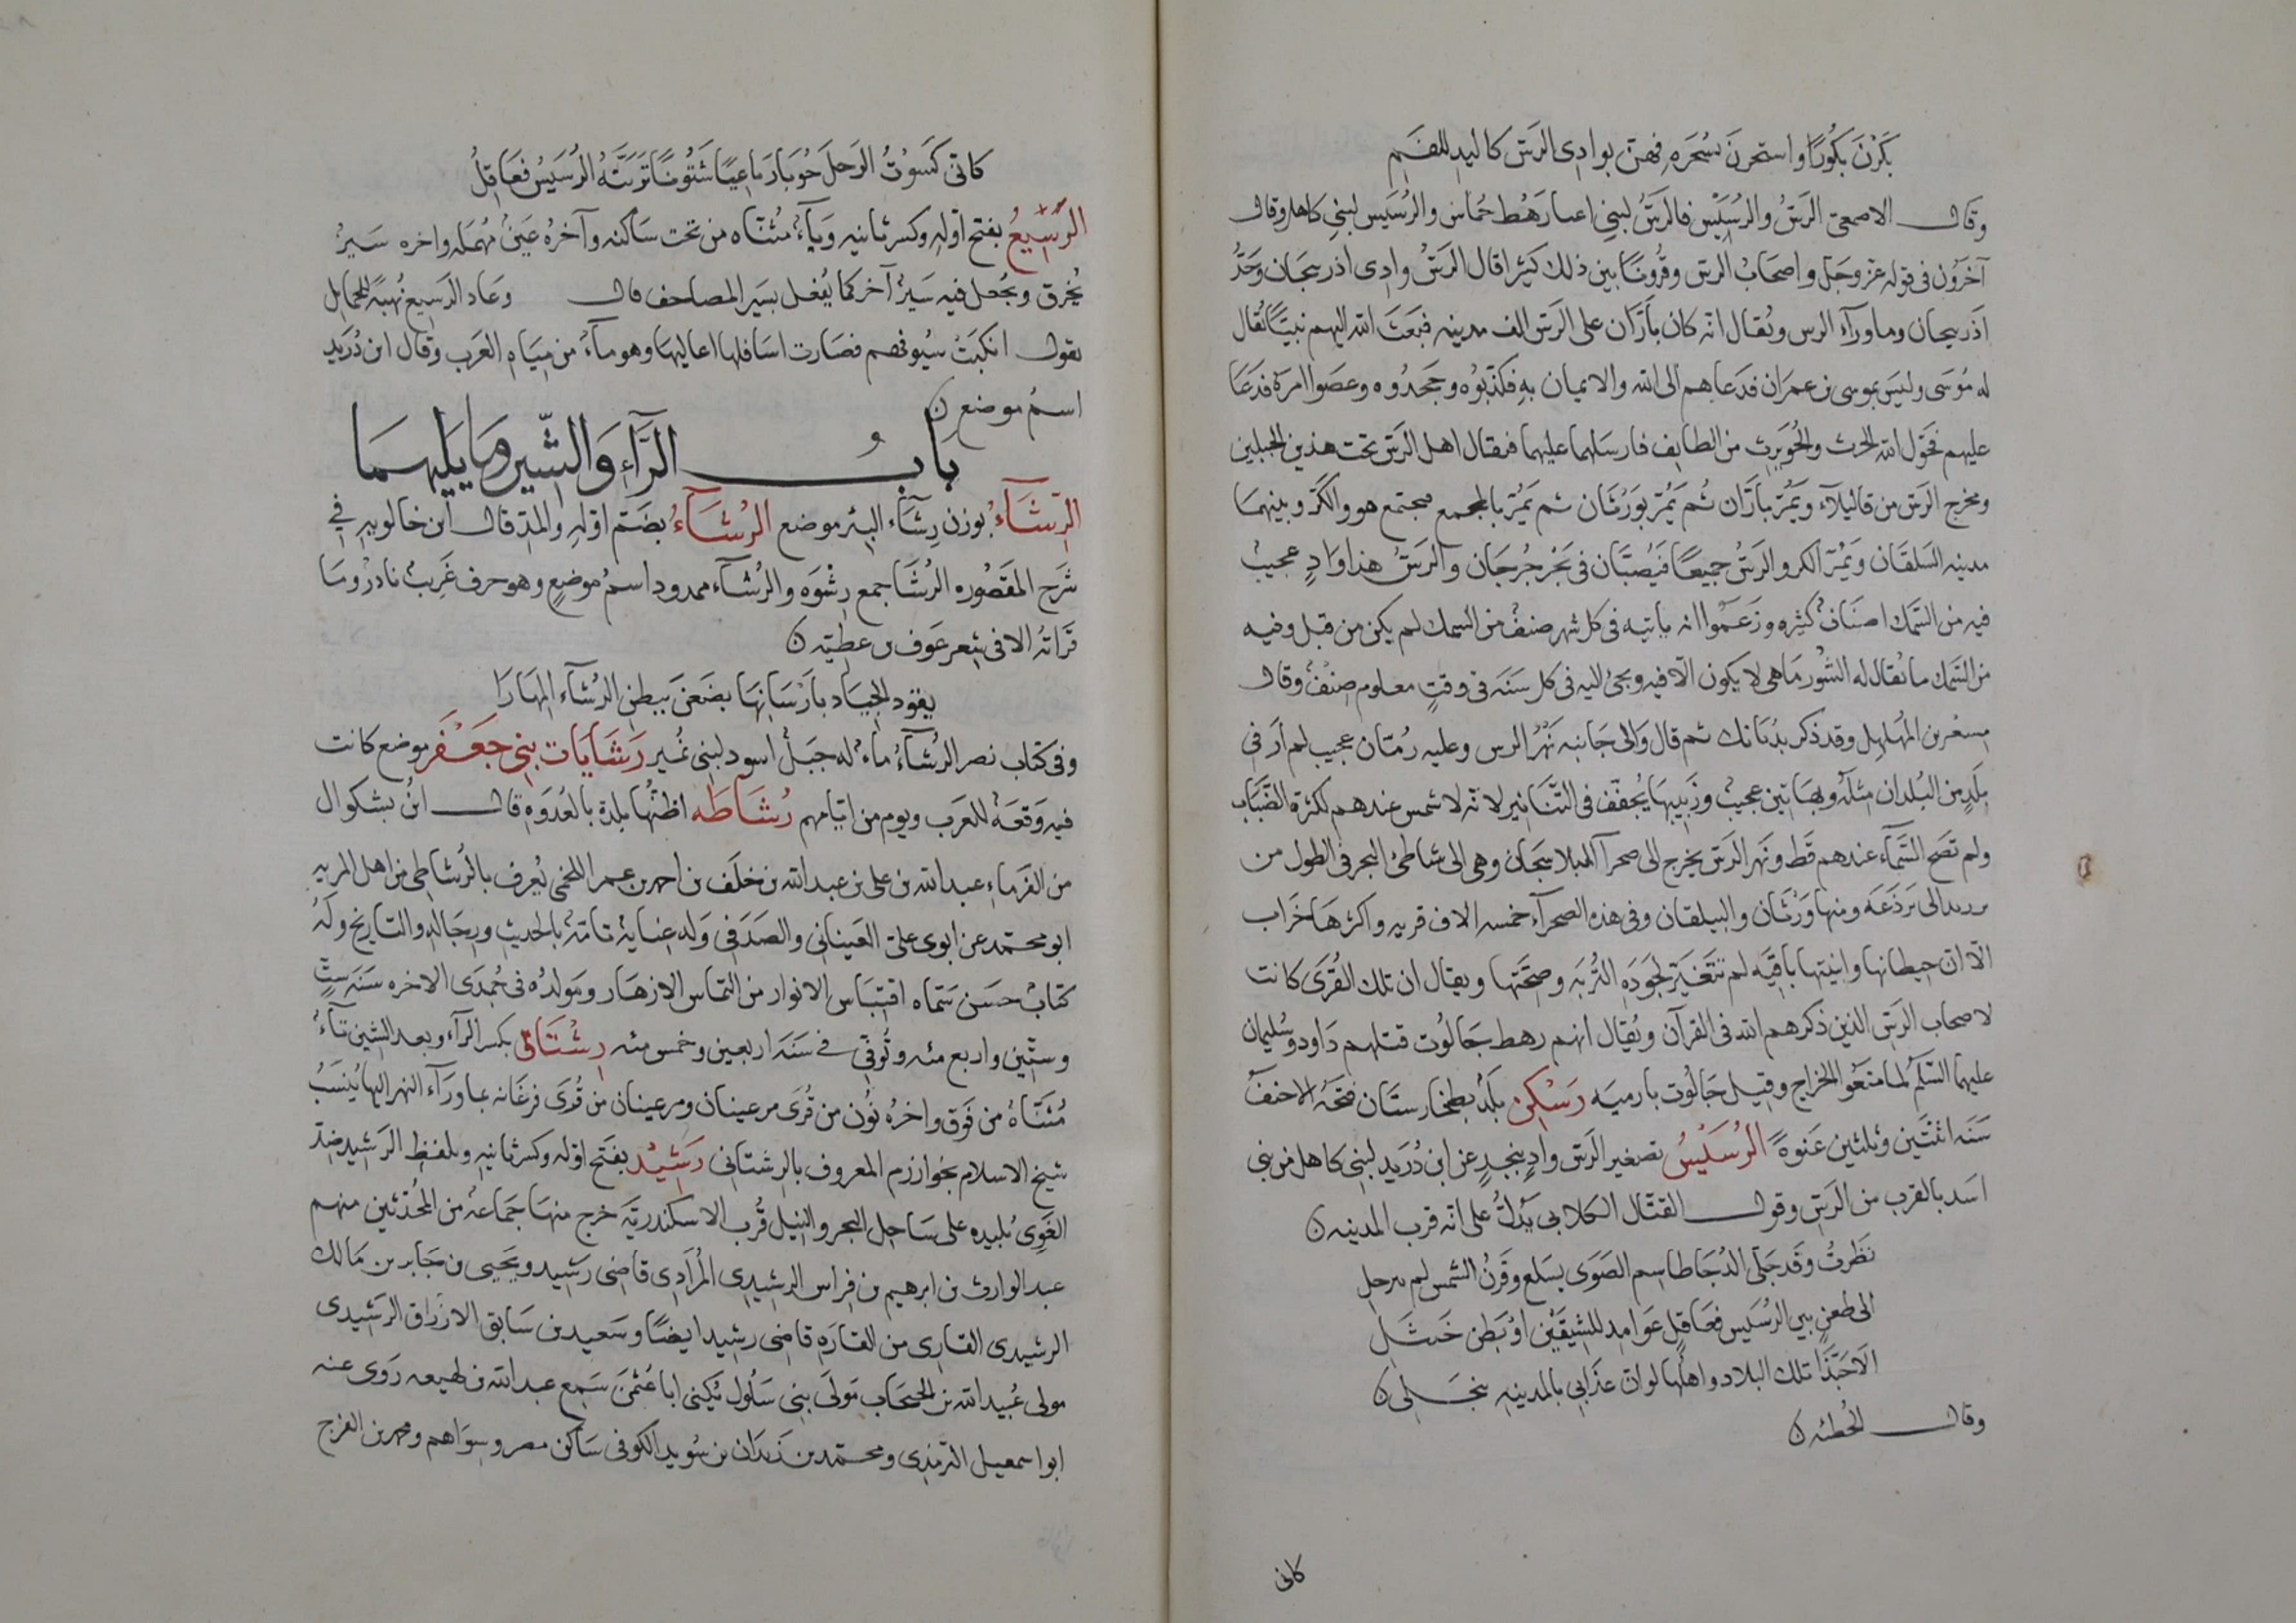 بَكَرْنَ بكُورًا واستحرنَ بسُحَرهٍ فهنّ بوادى الرَسّ كاليد للفَمِ
وقال الاصمعى الرَسّ والرُسَيْس فالرَسُّ لبنى اعيا رَهْط حُماس والرُسَيس لبنى كاهل وقال
آخَرُون فى قوله عز وجل واصحابُ الرس وقُرونًا بين ذلك كثيرًا قال الرَسّ وادى اذربيجان وَحَدُّ
اذَربيجان وما ورآء الرس ويُقال انّه كان بأرّان على الرَسّ الف مدينه فبَعَثَ الله اليهم نبيًّا يُقال
له مُوسَى وليسَ بموسى بن عمرَان فدَعاهم الى الله والايمان بهِ فكذّبوُه وجَحدُوه وعصَوا امرَه فدَعَا
عليهم فحَوّل الله الحرث والحُوَيرث من الطايف فارسَلهما عليهما فيقال اهل الرَسّ تحت هذين الجبلين
ومخرج الرَسّ من قاليقلآء ويَمُرّ بأرّان ثُم يَمُرّ بوَرْثان ثم يَمُرّ بالمجمع فيجتمع هو والكُرّ وبينهمَا
مدينه البَيلقَان وَيَمُرّ الكر والرَسُّ جميعًا فَيصُبّان فى بَحْر جُرجَان والرَسّ هذا وَادٍ عجيبُ
فيه من السَّمك اصنَافُ كثيره وزَعَمُوا انه ياتيه فى كل شهر صنفُ من السمك لم يكن من قبل وفيه
من السَّمك ما يُقال له الشُورمَاهى لا يكون الّا فيه ويجئ اليه فى كل سَنَه فى وقتٍ معلوم صِنْفُ وقال
مِسعَر بن المُهَلهِل وقد ذكر بذ بابك ثم قال وَالى جَانبه نَهْرُ الرس وعليه رُمّان عجيب لم أرَ فى
بلَدٍ من البُلدان مثلَهُ وبهَا تين عجيبُ وزَبيبها يُجَفّف فى التَّنَانير لانّه لا شمس عندهم لكثرة الضَّبَاب
ولم تصَحِ السَّمآء عندهم قَطّ ونهَر الرَسّ يخرج الى صحرآ البلاسجان وهى الى شاطئ البحر فى الطول من
برزند الى بَرْذَعَه ومنها وَرْثَان والبيلقان وفى هذه الصحرآء خمسه الاف قريه واكثرهَا خَرَاب
الّا ان حيطانها وابنيتها باقيَه لم تتغَيّر لجَودَةِ التُربَه وصِحّتها ويقال ان تلك القُرَى كانت
لاصحاب الرَسّ الذين ذكرهم الله فى القرآن ويُقال انهم رهط جَالُوت قتلهم دَاود وسُليمان
عليهما السَّلَم لما منَعُوا الخراج وقيل جَالُوت بارميَه رَسْكن بلَدُ بطخارستَان فتحَهُ الاحنَفُ
سَنَه اثنتَين وثلثين عَنوَةً الرُسَيْسُ تصغير الرَسّ وادٍ بنجدٍ عن ابن دُرَيد لبنى كاهل من بنى
اسَد بالقرب من الرَسّ وقول القتّال الكلابى يَدُلُّ على انّه قرب المدينه ن
نَظَرتُ وقَد جَلّى الدُجَا طاسم الصَوَى بسَلع وقَرنُ الشمس لم يترجل
الى ظعنٍ بين الرُسَيس فعَاقلٍ عَوَامِد للشيقَين او بَطنِ خَنثَل
الَا حَبّذَا تلك البلاد واهلُها لوان عذَابى بالمدينه ينجَلى ن
وقال الحُطئه ن
كانى
كانّى كَسَوتُ الرَحلَ جُونًا رَباعيًا شَنُونًا تَرَبَّتهُ الرُسَيسُ فعَاقِلُ
الرّسِيعُ بفتح اوّلهِ وكسر ثانيه وَيآءُ مُثنّاه من تحت ساكنه وآخرُه عَينُ مُهمَله واخره سَيرُ
يُخرق ويُجعل فيه سَيرُ آخر كما يُفعل بسَير المصاحف قال وعاد الرَسيع نُهيَةً للحمايل
يقول انكَبّتْ سُيوفهم فصَارت اسَافلها اعاليها وهو مآءُ من مِيَاهِ العَرب وقال ابن دُرَيد
اسمُ موضع ن
بابُ الرَّآءِ وَالشّينِ وَمَا يَليهِمَا
الرِّشَآءُ بوزن رِشَآءِ البئر موضع الرُشَآءُ بضَمّ اوّلهِ والمدّ قال ابن خالويهِ فى
شَرح المقصُوره الرُشَا جمع رِشْوَه والرُشآء ممدود اسمُ موضع وهو حرف غَريبُ نادرُ وما
قَراتُه الا فى شعر عَوف بن عطيّه ن
يقود الجيَاد بأرْسَانِهَا يضَعنَ ببطنِ الرُشآء المِهَارَا
وفى كتاب نصر الرُشآءُ ماءُ له جبَلُ اسود لبنى نُمير رَشَايَات بنى جَعْفَر موضع كانت
فيه وَقعَهُ للعَرب ويوم من ايّامهم رُشَاطَه اظنُّها بلدة بالعُدوَهِ قال ابنُ بشكوال
من الفَرَماءِ عبد الله بن على بن عبد الله بن خلَف بن احمد بن عمر اللخمى يُعرف بالرُشاطى من اهل المريه
ابو محمد عن ابوى على الغسانى والصَدَفى وَله عنايهُ تامّهُ بالحديث ورجَاله والتاريخ ولَهُ
كتابُ حسَن سَمّاه اقتبَاس الانوار من التماس الازهَار ومَولدُه فى جُمدَى الاخره سَنَه ستٍّ
وستّين واربع مئه وتُوفّى فى سَنَه اربعين وخمس مئه رِشْتَان بكسر الرآء وبعد الشين تآءُ
مُثنّاهُ من فَوق واخرُه نوُن من قُرَى مرغينان ومرغينان من قُرَى فرغَانه بما وَرَآء النهر اليها يُنسَبُ
شيخ الاسلام بخوارزم المعروف بالرشتانى رَشِيْد بفَتح اوّله وكسر ثانيه وبلفظ الرَشيد ضِدّ
الغَوِى بُليده على سَاحِل البحر والنيل قُرب الاسكندريَّه خرج منهَا جَمَاعهُ من المُحَدّثين منهم
عبد الوارث بن ابرهيم بن فِراس الرشيدى المُرَادى قاضى رَشيد ويَحيى بن جَابر بن مَالك
الرشيدى القارى من القارَهِ قاضى رشيد ايضًا وسَعيد بن سَابق الازرَق الرَشيدى
مولى عُبيد الله بن الحبحَاب مَولَى بنى سَلُول يُكنى ابا عُثمنَ سَمِع عبد الله بن لهيعه رَوى عنه
ابو اسمعيل الترمذى ومحمد بن زيدَان بن سُويد الكوفى سَاكن مصر وسِوَاهم ومحمد بن الفرج